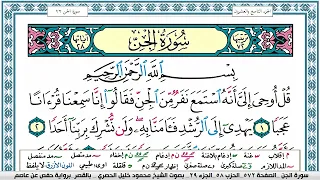 سُورَةُ الجِنّ
بِسْمِ اللَّهِ الرَّحْمَٰنِ الرَّحِيمِ
قُلْ أُوحِيَ إِلَيَّ أَنَّهُ اسْتَمَعَ نَفَرٌ مِّنَ الْجِنِّ فَقَالُوا إِنَّا سَمِعْنَا قُرْآنًا
عَجَبًا ١ يَهْدِي إِلَى الرُّشْدِ فَآمَنَّا بِهِ وَلَن نُّشْرِكَ بِرَبِّنَا أَحَدًا ٢
سورة الجن الصفحة ٥٧٢ الجزء ٢٩ بصوت الشيخ محمود خليل الحصري بالقصر برواية حفص عن عاصم